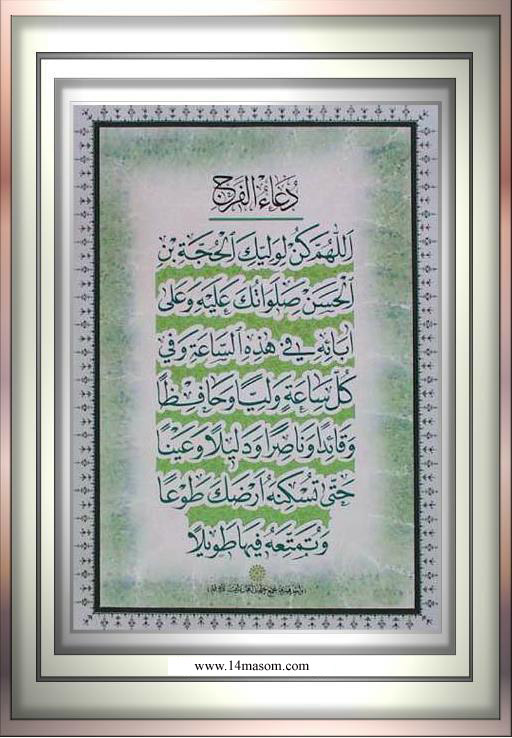 دُعَاءُ الفَرَج
اَللّهُمَّ كُنْ لِوَلِيِّكَ الْحُجَّةِ بْنِ
الْحَسَنْ صَلَوَاتُكَ عَلَيْهِ وَعَلى
ابَائِهِ فِي هذِهِ السَّاعَةِ وَفِي
كُلِّ سَاعَةٍ وَلِيًّا وَحَافِظًا
وَقَائِدًا وَنَاصِرًا وَدَلِيْلًا وَعَيْنًا
حَتّى تُسْكِنَهُ اَرْضَكَ طَوْعًا
وَتُمَتِّعَهُ فِيهَا طَوِيلًا
www.14masom.com